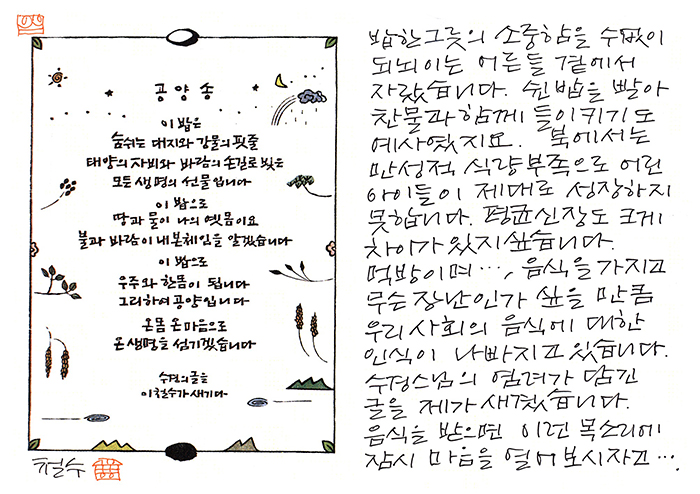 공양송
이 밥은
숨쉬는 대지와 강물의 핏줄
태양의 자비와 바람의 손길로 빚은
모든 생명의 선물입니다
이 밥으로
땅과 물이 나의 옛몸이요
불과 바람이 내 본체임을 알겠습니다
이 밥으로
우주와 한몸이 됩니다
그리하여 공양입니다
온몸 온마음으로
온생명을 섬기겠습니다
수정의 글을
이철수가 새기다
철수
밥한그릇의 소중함을 수없이
되뇌이는 어른들 곁에서
자랐습니다. 쉰 밥을 빨아
찬물과 함께 들이키기도
예사였지요. 북에서는
만성적 식량부족으로 어린
아이들이 제대로 성장하지
못합니다. 평균신장도 크게
차이가 있지싶습니다.
먹방이며…, 음식을 가지고
무슨 장난인가 싶을 만큼
우리 사회의 음식에 대한
인식이 나빠지고 있습니다.
수정스님의 염려가 담긴
글을 제가 새겼습니다.
음식을 받으면 이런 목소리에
잠시 마음을 열어 보시자고….